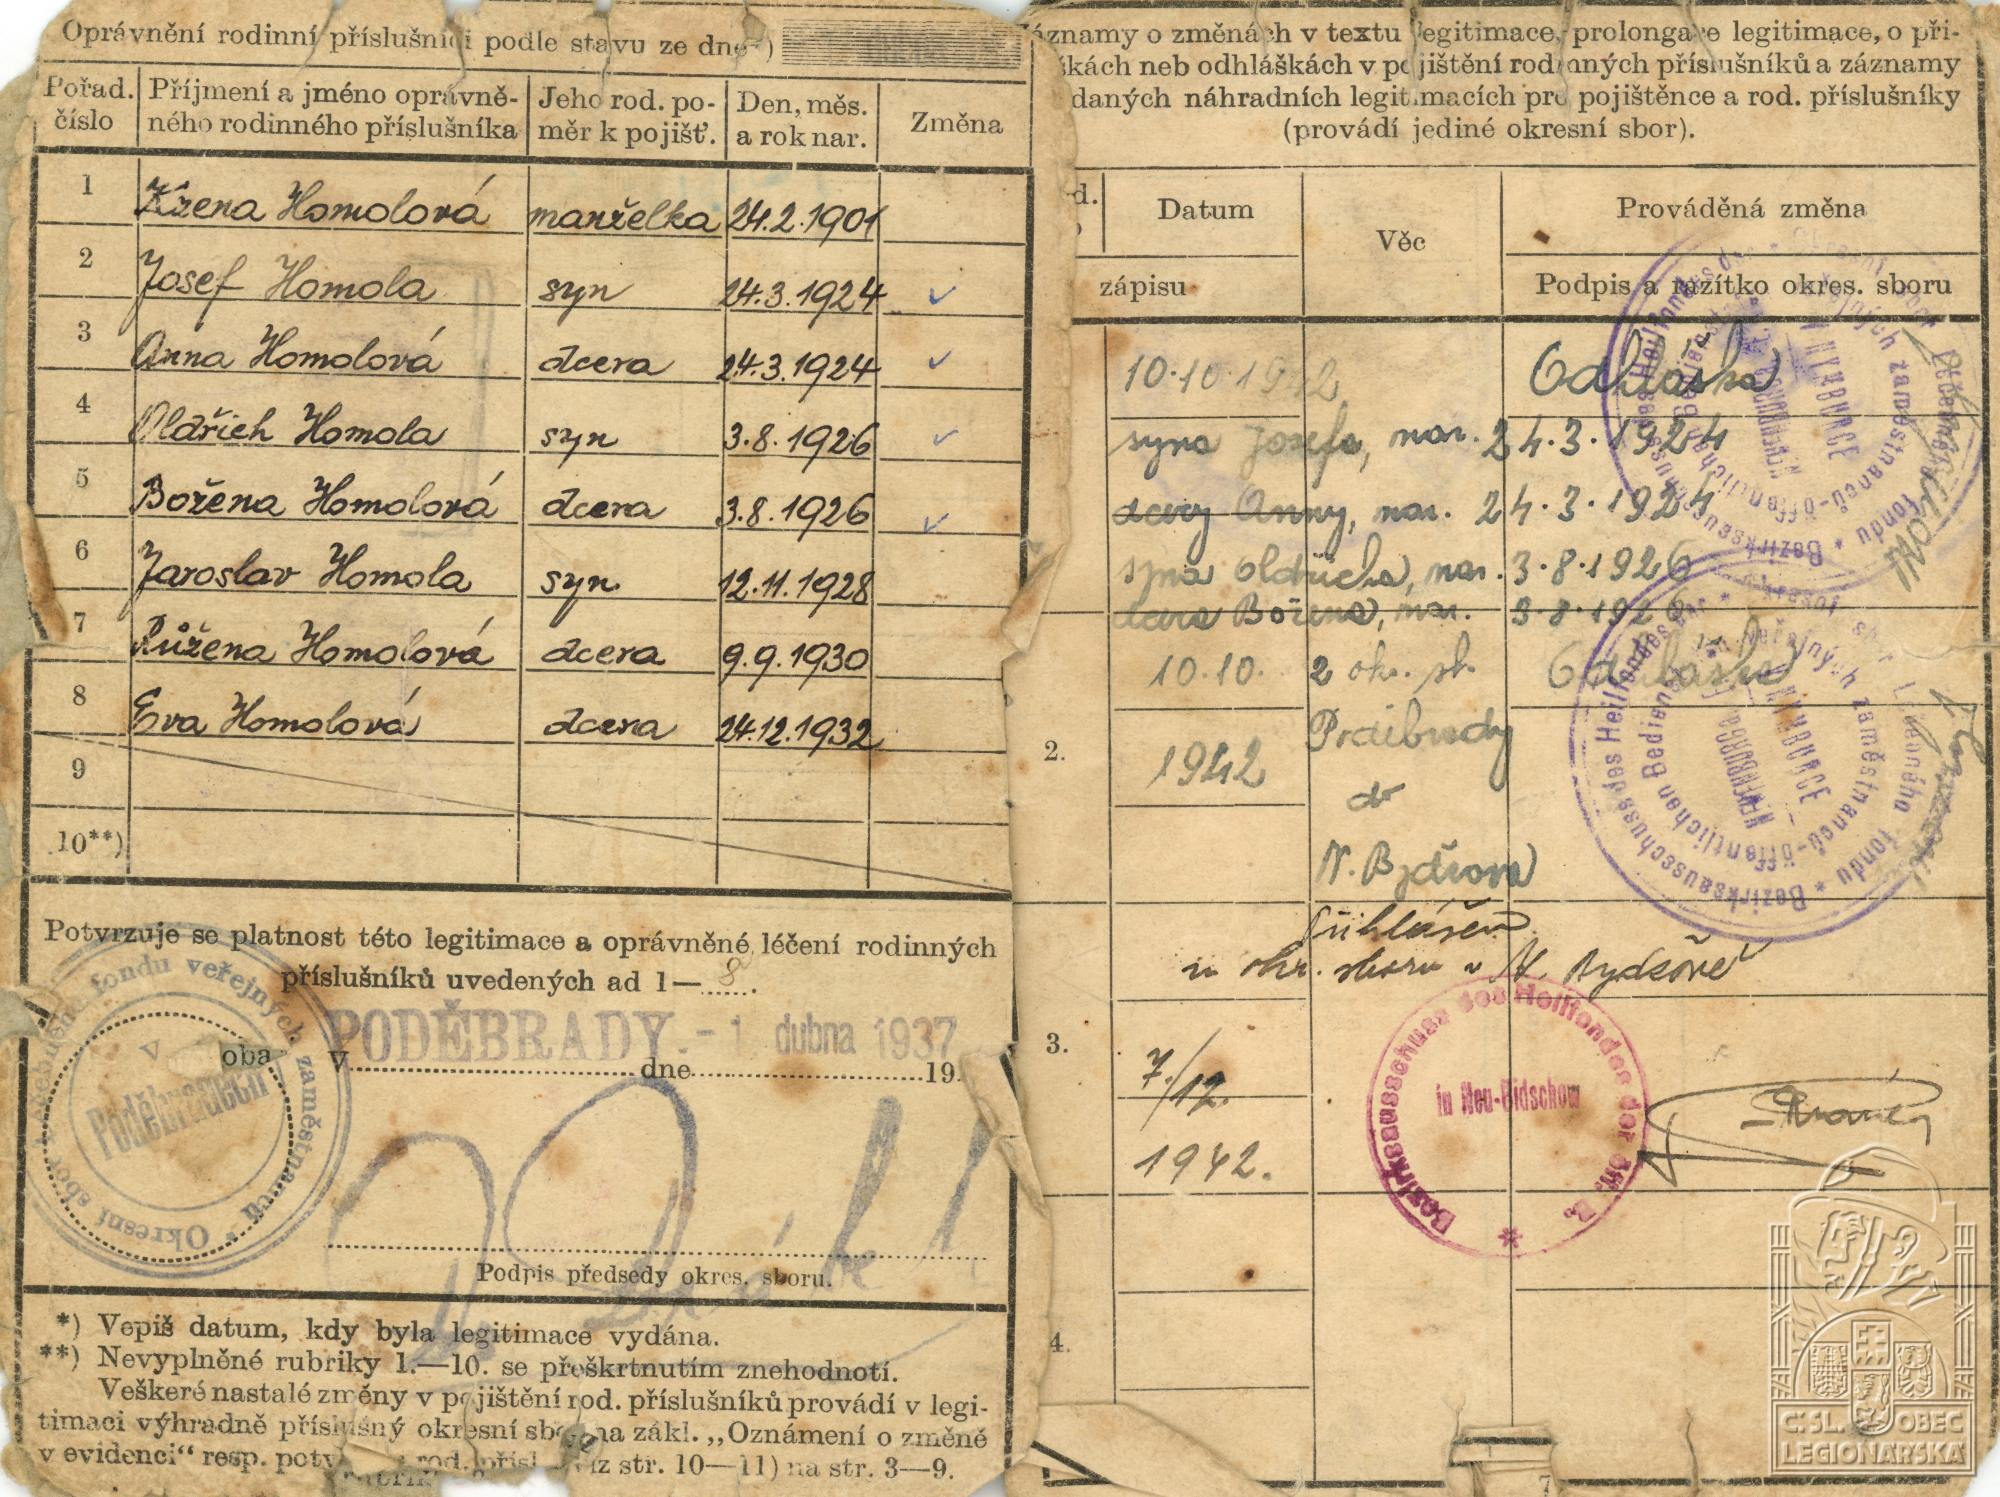 Oprávnění rodinní příslušníci podle stavu ze dne*)
Pořad. číslo
Příjmení a jméno oprávně-
ného rodinného příslušníka
Jeho rod. po-
měr k pojišť.
Den, měs.
a rok nar.
Změna
1 Homolová manželka 24.2.1901
2 Josef Homola syn 24.3.1924 ✓
3 Anna Homolová dcera 24.3.1924 ✓
4 Oldřich Homola syn 3.8.1926 ✓
5 Božena Homolová dcera 3.8.1926 ✓
6 Jaroslav Homola syn 12.11.1928
7 Růžena Homolová dcera 9.9.1930
8 Eva Homolová dcera 24.12.1932
9
10**)
Potvrzuje se platnost této legitimace a oprávněné léčení rodinných
příslušníků uvedených ad 1—8.
v PODĚBRADY dne - 1. dubna 1937 19
Okresní sbor Léčebného fondu veřejných zaměstnanců
v Poděbradech
Podpis předsedy okres. sboru.
*) Vepiš datum, kdy byla legitimace vydána.
**) Nevyplněné rubriky 1.—10. se přeškrtnutím znehodnotí.
Veškeré nastalé změny v pojištění rod. příslušníků provádí v legi-
timaci výhradně příslušný okresní sbor na zákl. „Oznámení o změně
v evidenci“ resp. rod. str. 10—11) na str. 3—9.
Záznamy o změnách v textu legitimace, prolongace legitimace, o při-
hláškách neb odhláškách v pojištění rodinných příslušníků a záznamy
daných náhradních legitimacích pro pojištěnce a rod. příslušníky
(provádí jediné okresní sbor).
Datum
zápisu
Věc
Prováděná změna
Podpis a razítko okres. sboru
10.10.1942 Odhláška
syna Josefa, nar. 24.3.1924
dcery Anny, nar. 24.3.1924
syna Oldřicha, nar. 3.8.1926
dcera Božena, nar. 3.8.1926
2. 10.10. z okr. sb. Odhláška
1942 Poděbrady
do
N. Bydžova
Přihlášen
u okr. sboru v N. Bydžově
3. 7./12.
1942.
4.
Bezirksausschuss des Heilfondes der öffentlichen Bediensteten
NYMBURCE
Bezirksausschuss des Heilfondes der öffentlichen Bediensteten
NYMBURCE
Bezirksausschuss des Heilfondes der öff. B.
in Neu-Bidschow
7
ČSL. OBEC
LEGIONÁŘSKÁ